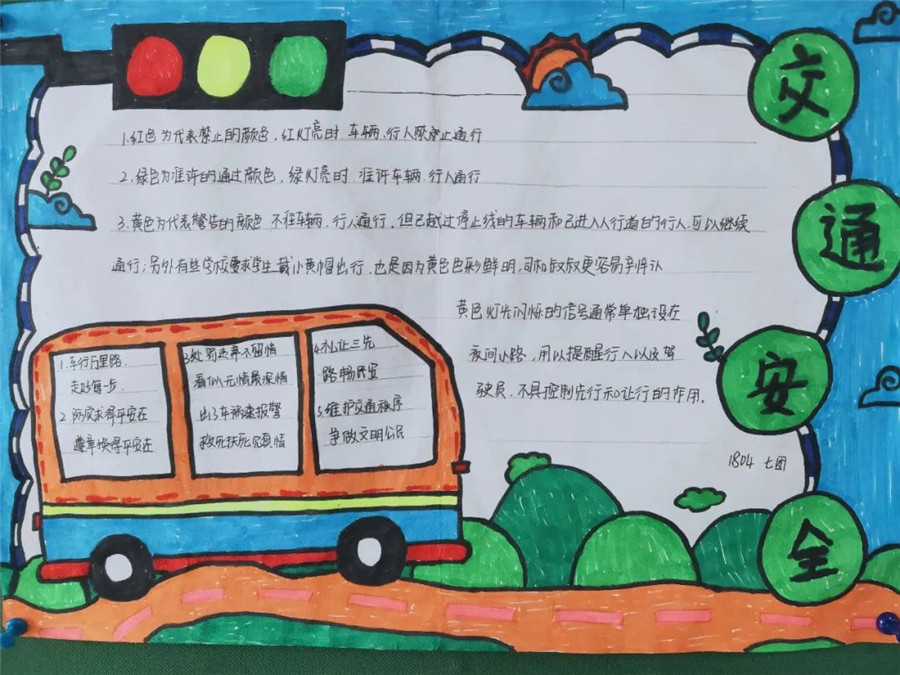 交
通
安
全
1.红色为代表禁止的颜色,红灯亮时 车辆.行人禁止通行
2.绿色为准许的通过颜色,绿灯亮时 准许车辆.行人通行
3.黄色为代表警告的颜色 不准车辆.行人通行.但已越过停止线的车辆和已进入人行道的行人.可以继续
通行;另外有些学校要求学生戴小黄帽出行.也是因为黄色色彩鲜明,司机叔叔更容易辨认
黄色灯光闪烁的信号通常单独设在
夜间小路,用以提醒行人以及驾
驶员.不具控制先行和让行的作用。
1.车行万里路.
走好每一步.
2.防灾求得平安在
遵章换得平安在
3.处罚违章不留情
看似无情最深情
出了车祸速报警
救死扶
4.礼让三先
路畅民安
5.维护交通秩序
争做文明公民
1804 七团